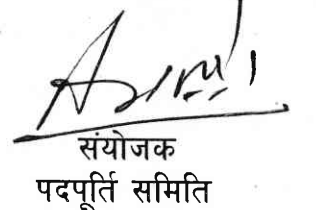 संयोजक
पदपूर्ति समिति